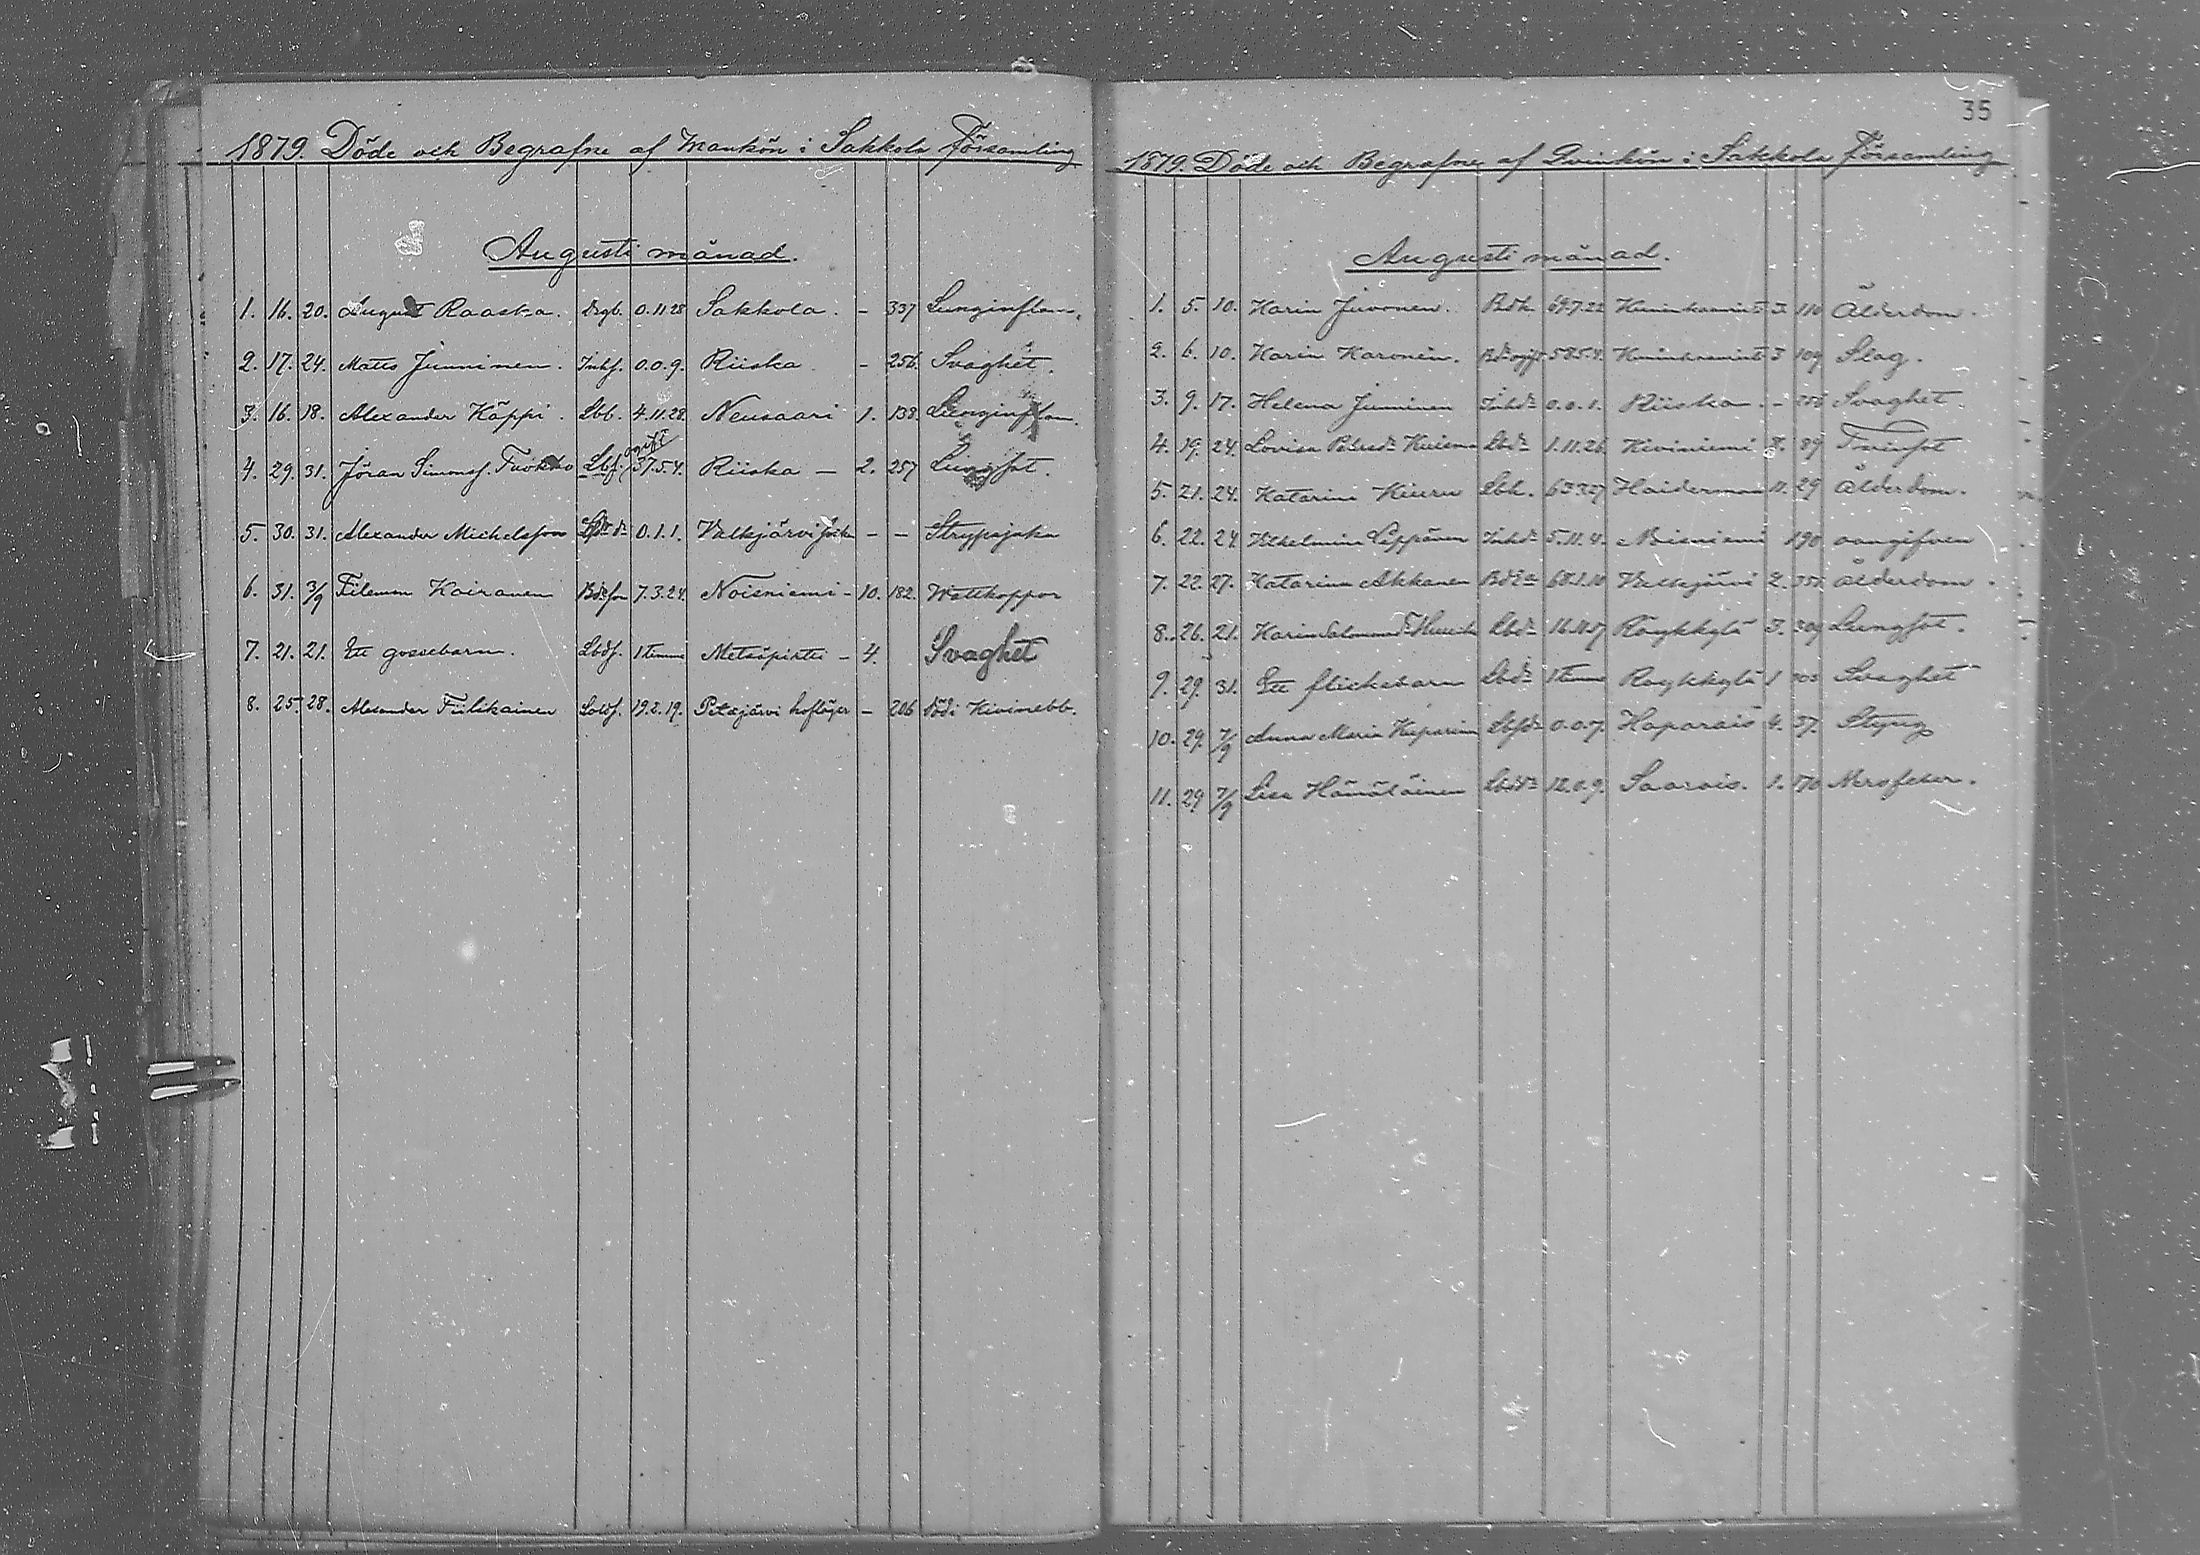 1879. Döde och Begrafne af Mankön i Sakkola Församling
Augusti månad.
1. 16. 20. August Raaska. 0.11.28 Sakkola. - 337 Lunginflam.
2. 17. 24. Matts Junninen. Inhs. 0.0.9. Riiska - 256. Svaghet.
3. 16. 18. Alexander Käppi. Lbb. 4.11.28. Neusaari 1. 138. Lunginflam.
4. 29. 31. Jöran Simonss. Tuokko Lbf. gift 37.5.4. Riiska - 2. 257 Lungsot.
5. 30. 31. Alexander Michelsson 0.1.1. Valkjärvi - - Strypsjuka
6. 31. 3/9 Filemon Kairanen Bdeson 7.3.24. Noisniemi - 10. 182. Wattkoppor
7. 21. 21. Ett gossebarn. Lbds. 1 timme Metsäpirtti - 4. Svaghet
8. 25. 28. Alexander Fiilikainen Solds. 19.2.19. Petäjärvi hofläger - 206 Död i Kivinebb.
35
1879. Döde och Begrafne af Qvinkön i Sakkola Församling
Augusti månad.
1. 5. 10. Karin Juvonen. Bdh. 69.7.22 3. 110 Ålderdom.
2. 6. 10. Karin Karonen. 58.5.4. 3 109 Slag.
3. 9. 17. Helena Junninen Inhdr 0.0.1. Riiska. - 256 Svaghet.
4. 19. 24. Lovisa Lbdr 1.11.26. Kiviniemi 8. 89 Tvinsot
5. 21. 24. Katarina Kiuru Lbh. 63.3.27 Haiderman 11. 29 Ålderdom.
6. 22. 24 Vilhelmina Läppänen Inhdr 5.11.4. Noisniemi 190 oangifven
7. 22. 27. Katarina Akkanen 68.1.10 Valkjärvi 2. ålderdom.
8. 26. 21. Karin Salomonsd. Lbdr Röykkylä 3. 309 Lungsot.
9. 29. 31. Ett flickebarn Lbdr 1 timme Röykkylä 1. Svaghet
10. 29. 7/9 Anna Maria Kuparinen 0.0.7. Haparais 4. 37. Styng
11. 29 7/9 Lisa Hämäläinen 12.0.9. Saarois. 1. 170 Nervfeber.